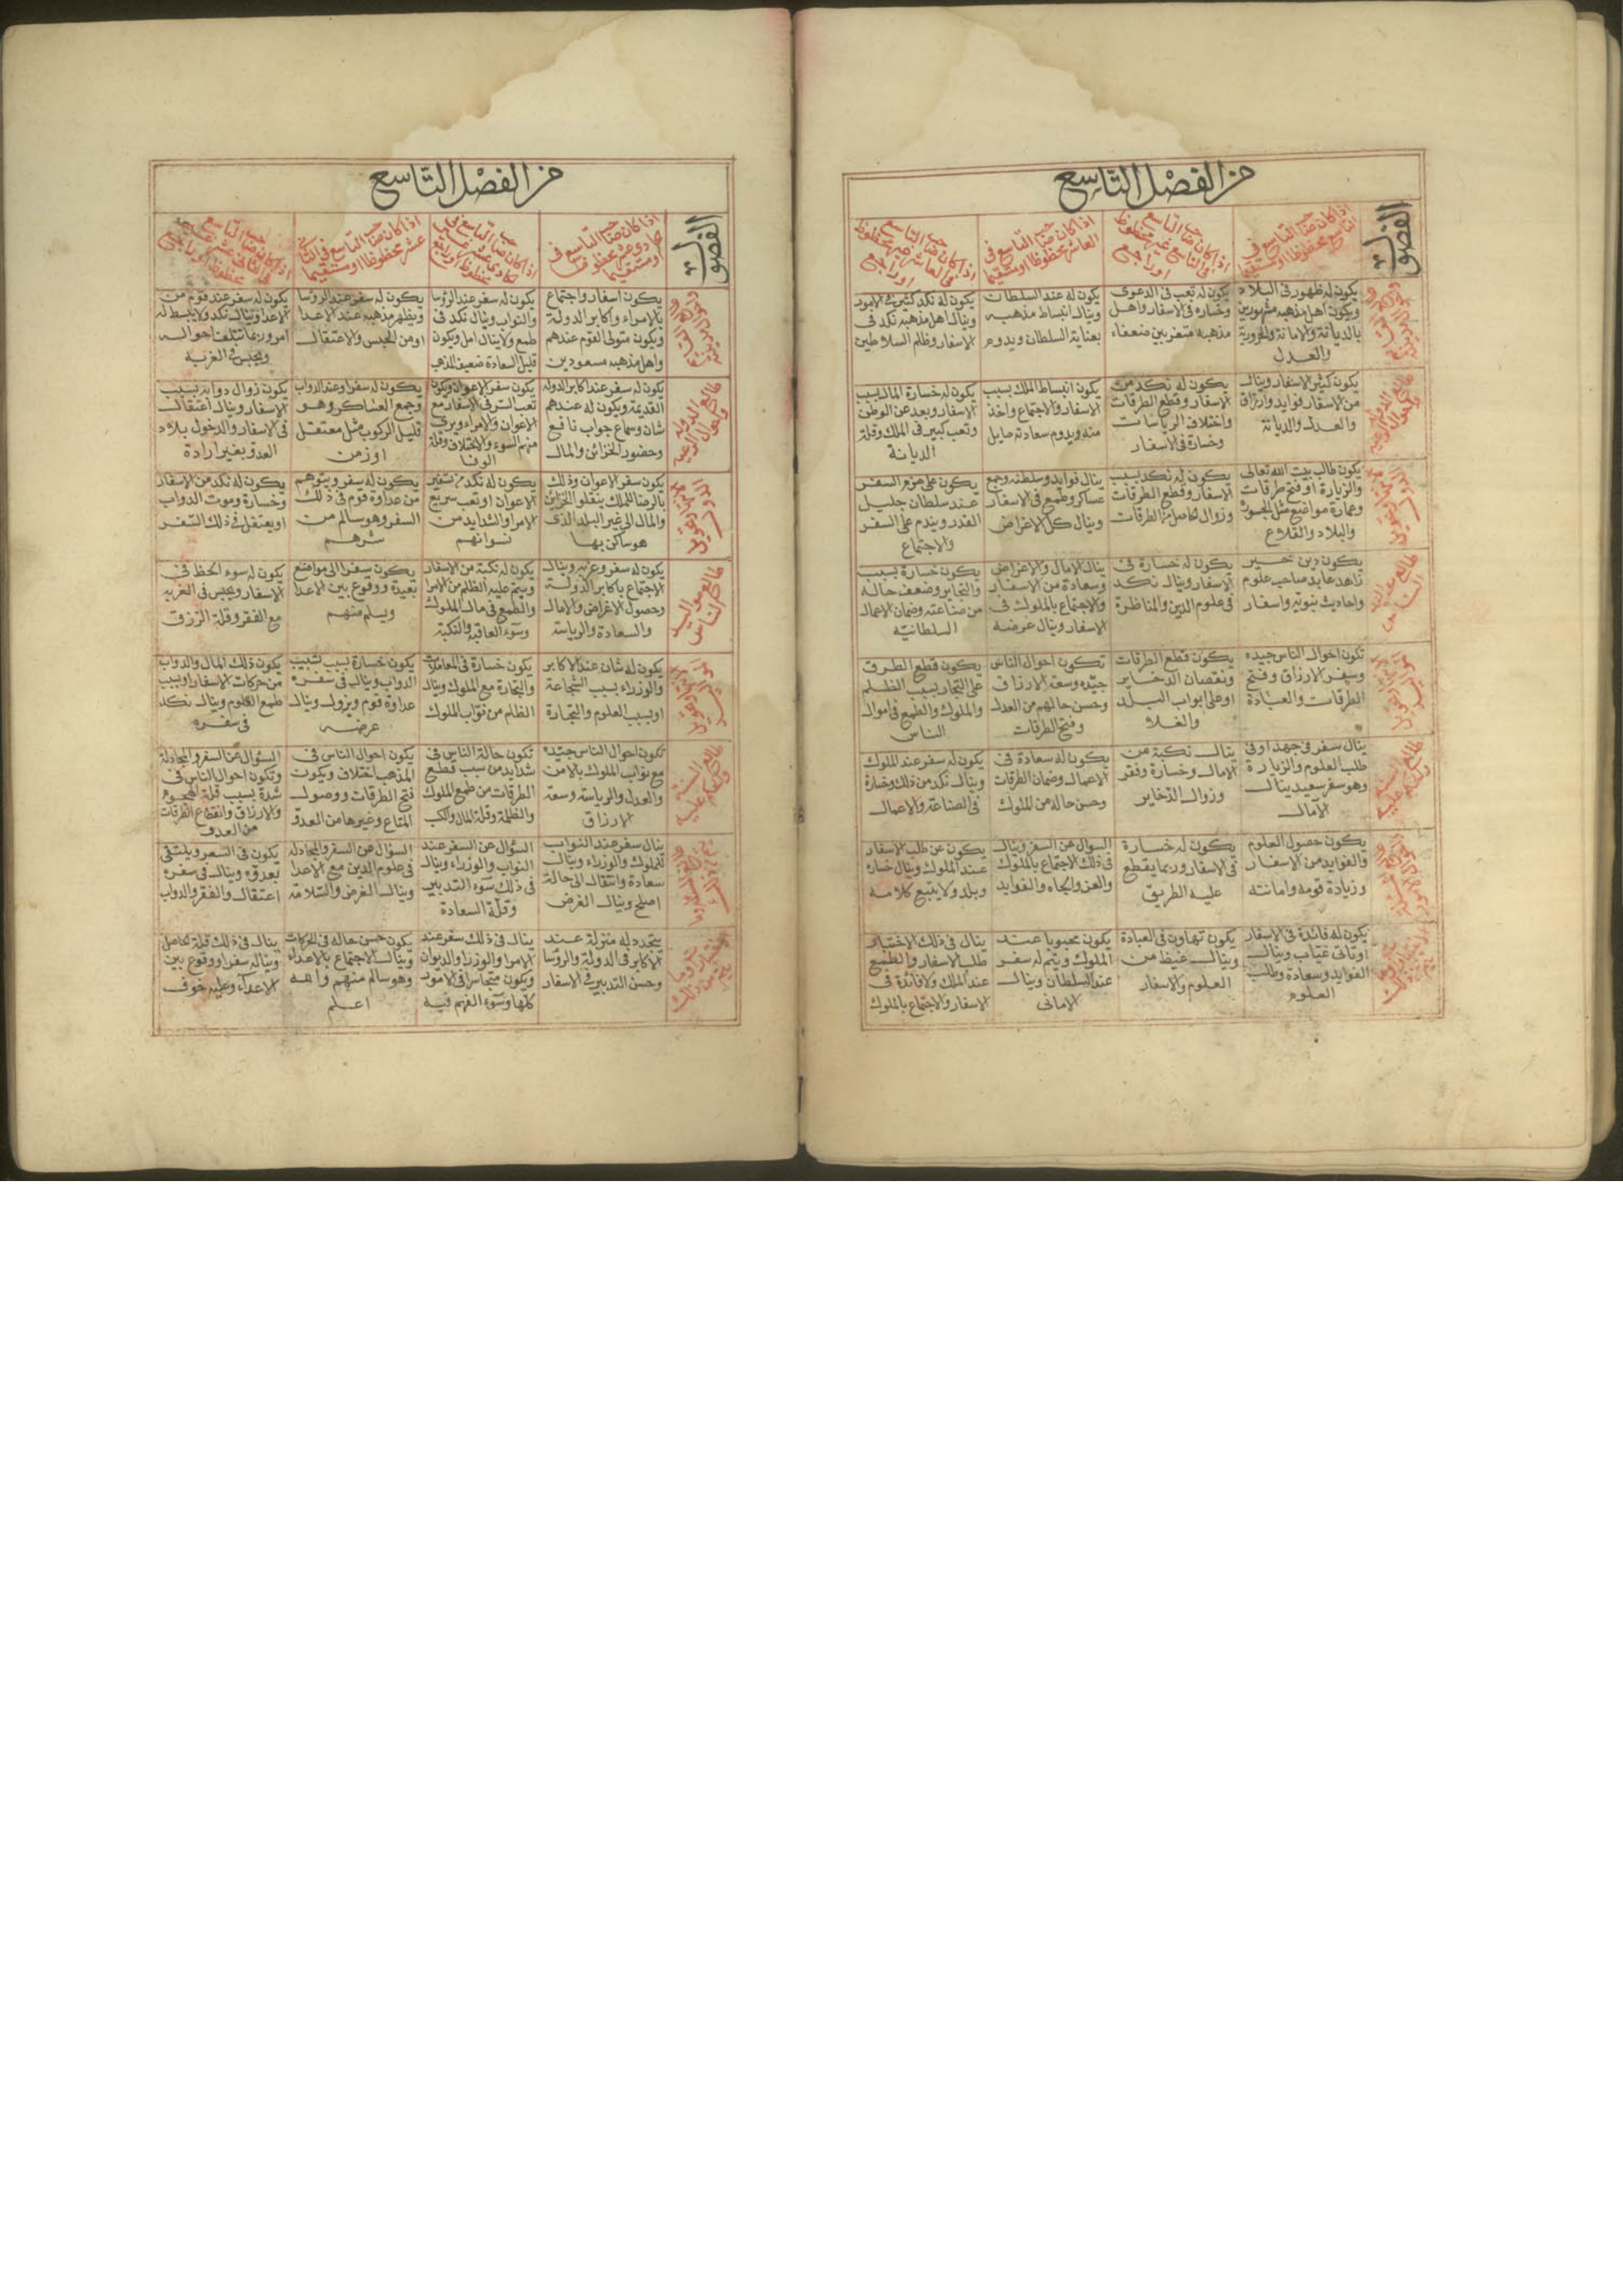 من الفصل التاسع
الفصول
اذا كان صاحب التاسع في
التاسع محظوظا او مستقيما
اذا كان صاحب التاسع
في التاسع غير محظوظ
او راجع
اذا كان صاحب التاسع في
العاشر محظوظا او مستقيما
اذا كان صاحب التاسع
في العاشر غير محظوظ
او راجع
يكون له ظهور في البلاد
ويكون اهل مذهبه مشهورين
بالديانة والامانة
والعدل
يكون له تعب في الدعوى
وخساره في الاسفار واهل
مذهبه متغربين ضعفاء
يكون له عند السلطان
وينال انبساط مذهبه
بعناية السلطان ويدوم
يكون له نكد كثير في الامور
وينال اهل مذهبه نكد في
الاسفار وظلم السلاطين
يكون كثير الاسفار وينال
من الاسفار فوايد وارزاق
والعدل والديانة
يكون له نكد من
الاسفار وقطع الطرقات
واختلاف الرياسات
وخسارة في الاسفار
يكون انبساط الملك بسبب
الاسفار والاجتماع واخذ
منه ويدوم سعادته
يكون له خسارة المال بسبب
الاسفار وبعد عن الوطن
وتعب كبير في الملك وقلة
الديانة
يكون طالب بيت الله تعالى
والزيارة او فتح طرقات
وعمارة مواضع مثل
والبلاد والقلاع
يكون له نكد بسبب
الاسفار وقطع الطرقات
وزوال الحاصل من الطرقات
ينال فوايد وسلطنه وجمع
عساكر وطمع في الاسفار
وينال كل الاغراض
يكون على عزم السفر
عند سلطان جليل
القدر ويندم على السفر
والاجتماع
يكون دين خير
زاهد عابد صاحب علوم
واحاديث نبويه واسفار
يكون له خسارة في
الاسفار وينال نكد
في علوم الدين والمناظرة
ينال الامال والاغراض
وسعادة من الاسفار
والاجتماع بالملوك في
الاسفار وينال غرضه
يكون خسارة بسبب
والتجاير وضعف حاله
من صناعته وضمان الاعمال
السلطانية
تكون احوال الناس جيده
وسفر الارزاق وفتح
الطرقات والعبادة
يكون قطع الطرقات
ونقصان الذخاير
او على ابواب البلد
والغلا
تكون احوال الناس
جيده وسعة الارزاق
وحسن حالهم من العدل
وفتح الطرقات
يكون قطع الطرق
على التجار بسبب الظلم
والملوك والطمع في اموال
الناس
ينال سفر في جهد او في
طلب العلوم والزيارة
وهو سفر سعيد ينال
الآمال
ينال نكبة من
الامال وخسارة وفقر
وزوال الذخاير
يكون له سعادة في
الاعمال وضمان الطرقات
وحسن حاله من الملوك
يكون له سفر عند الملوك
وينال نكد من ذلك وخسارة
في الصناعة والاعمال
يكون حصول العلوم
والفوايد من الاسفار
وزيادة قومه وامانته
يكون له خسارة
في الاسفار وربما يقطع
عليه الطريق
السوال عن السفر وينال
في ذلك الاجتماع بالملوك
والعز والجاه والفوايد
يكون عن طلب الاسفار
عند الملوك وينال خساره
ولا يتبع كلامه
يكون له فائدة في الاسفار
وينال
الفوايد وسعادة وطلب
العلوم
يكون تهاون في العبادة
وينال غيظ من
العلوم والاسفار
يكون محبوبا عند
الملوك ويتم له سفر
عند السلطان وينال
الاماني
ينال في ذلك الاختيار
طلب الاسفار والطمع
عند الملك ولا فائدة في
الاسفار والاجتماع بالملوك
من الفصل التاسع
الفصول
اذا كان صاحب التاسع في
حادي عشر محظوظا
او مستقيما
اذا كان صاحب التاسع في
الحادي عشر غير
محظوظ او راجع
اذا كان صاحب التاسع في الثاني
عشر محظوظا او مستقيما
اذا كان صاحب التاسع
في الثاني عشر غير
محظوظ او راجع
يكون اسفار واجتماع
بالامراء واكابر الدولة
ويكون متولى القوم عندهم
واهل مذهبه مسعودين
يكون له سفر عند الرؤسا
والنواب وينال نكد في
طمع ولا ينال امل ويكون
قليل السعادة ضعيف المذهب
يكون له سفر عند الرؤسا
ويظهر مذهبه عند الاعدا
او من الحبس والاعتقال
يكون له سفر عند قوم من
الاعدا وينال نكد ولا ينبسط له
امر وربما تتلف احواله
ويحبس في الغربه
يكون له سفر عند اكابر الدوله
القديمة ويكون له عندهم
شان وسماع جواب نافع
وحضور الخزائن والمال
يكون سفر الاعوان ويكون
تعب السر في الاسفار مع
الاعوان والامراء ويرى
منهم السوء والاختلاف وقلة
الوفا
يكون له سفر او عند الدواب
وجمع العساكر وهو
قليل الركوب مثل معتقل
او زمن
يكون زوال دوابه بسبب
الاسفار وينال اعتقال
في الاسفار والدخول بلاد
العدو بغير ارادة
يكون سفر الاعوان وذلك
بالرضا للملك ينقلوا الخزاين
والمال الى غير البلد الذي
هو ساكن بها
يكون له نكد من تغير
الاعوان او تعب سريع
الامرا والشدايد من
نوابهم
يكون له سفر ويتوهم
من عداوة قوم في ذلك
السفر وهو سالم من
شرهم
يكون له نكد من الاسفار
وخسارة وموت الدواب
او يعتقل في ذلك السفر
يكون له سفر وعز به وينال
الاجتماع باكابر الدولة
وحصول الاغراض والامال
والسعادة والرياسة
يكون له نكبة من الاسفار
ويتم عليه الظلم من الامرا
والطمع في مال الملوك
وسوء العاقبة والنكبة
يكون سفر الى مواضع
بعيدة ووقوع بين الاعدا
ويسلم منهم
يكون له سوء الحظ في
الاسفار ويحبس في الغربه
مع الفقر وقلة الرزق
يكون له شان عند الاكابر
والوزراء بسبب الشجاعة
او بسبب العلوم والتجارة
يكون خسارة في المعاملات
والتجارة مع الملوك وينال
الظلم من نواب الملوك
يكون خسارة بسبب تسبيب
الدواب وينال في سفره
عداوة قوم ويزول وينال
غرضه
يكون ذلك المال والدواب
من حركات الاسفار او بسبب
طمع القوم وينال نكد
في سفره
تكون احوال الناس جيده
مع نواب الملوك بالامن
والعدل والرياسة وسعة
الارزاق
تكون حالة الناس في
شدايد من سبب قطع
الطرقات من طمع الملوك
والظلمة وقلة المال والكسب
يكون احوال الناس في
المذهب اختلاف ويكون
فتح الطرقات ووصول
المتاع وغيرها من العدو
السؤال عن السفر والمجادلة
وتكون احوال الناس في
شدة بسبب قلة الهجوم
والارزاق وانقطاع الطرقات
من العدو
ينال سفر عند النواب
للملوك والوزراء وينال
سعادة وانتقال الى حالة
اصلح وينال الغرض
السؤال عن السفر عند
النواب والوزراء وينال
في ذلك سوء التدبير
وقلة السعادة
السؤال عن السفر والمجادله
في علوم الدين مع الاعدا
وينال الغرض والسلامة
يكون في السفر ويلتقي
بعدوه وينال في سفره
اعتقال والفقر والدواب
يتجدد له منزلة عند
الاكابر في الدولة والرؤسا
وحسن التدبير في الاسفار
ينال في ذلك سفر عند
الامرا والوزرا والديوان
ويكون متجاسرا في الامور
كلها وسوء الفهم فيه
يكون حسن حاله في الحركات
وينال الاجتماع بالاعداء
وهو سالم منهم والله
اعلم
ينال في ذلك قلة الحاصل
ويناله سفر او وقوع بين
الاعداء وعليه خوف